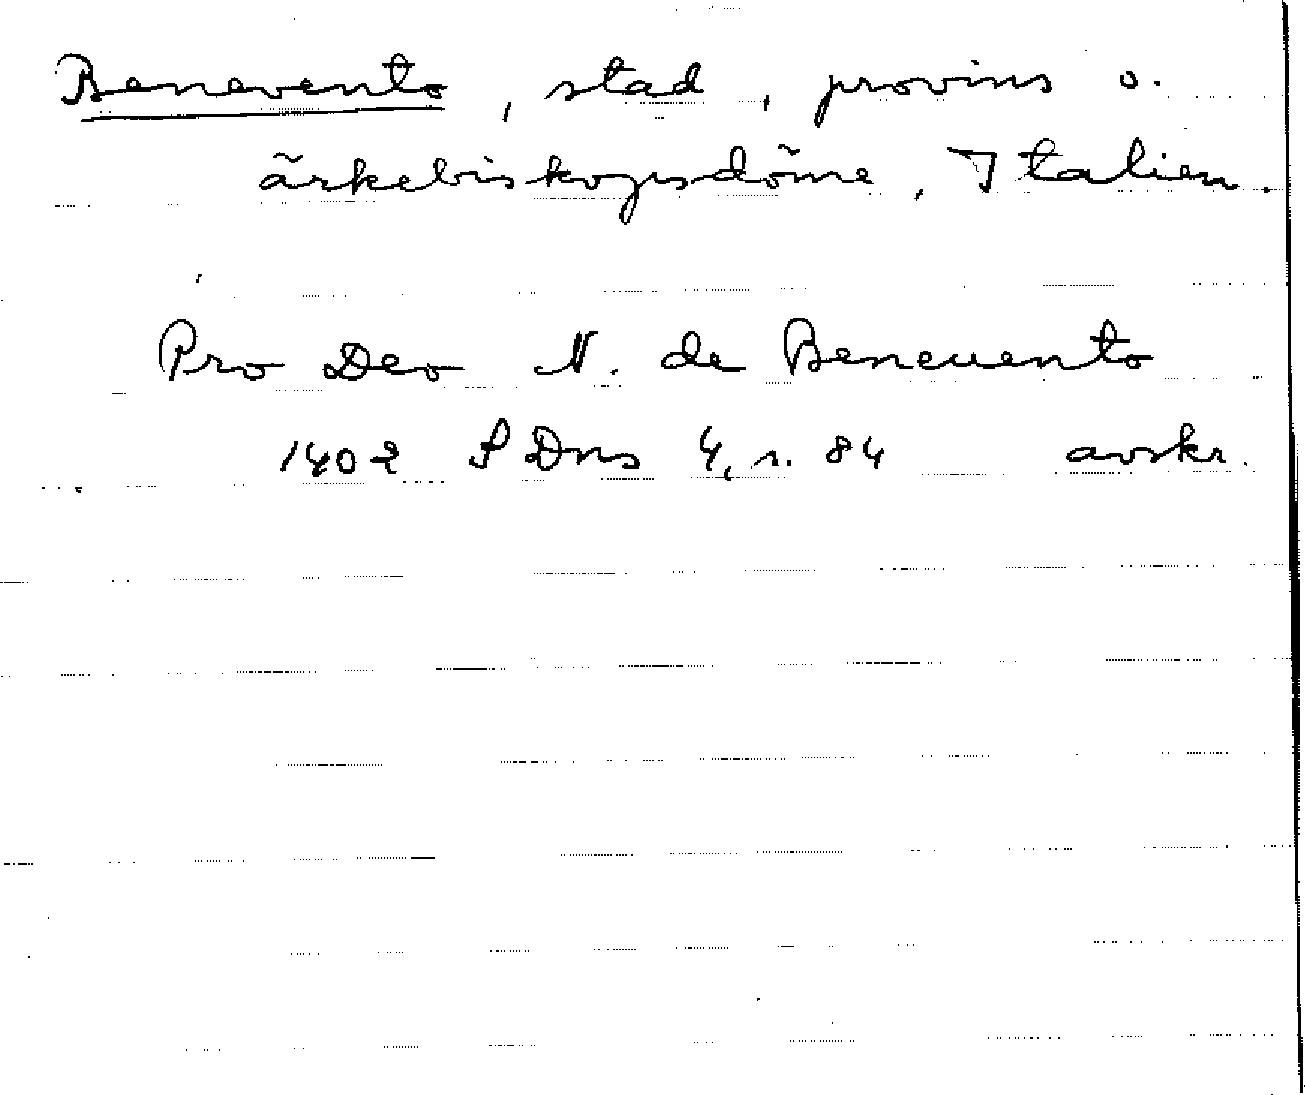 Benevento, stad, provins o.
ärkebiskopsdöme, Italien.
Pro Deo N. de Beneuento
1402 PDns 4, s. 84 avskr.